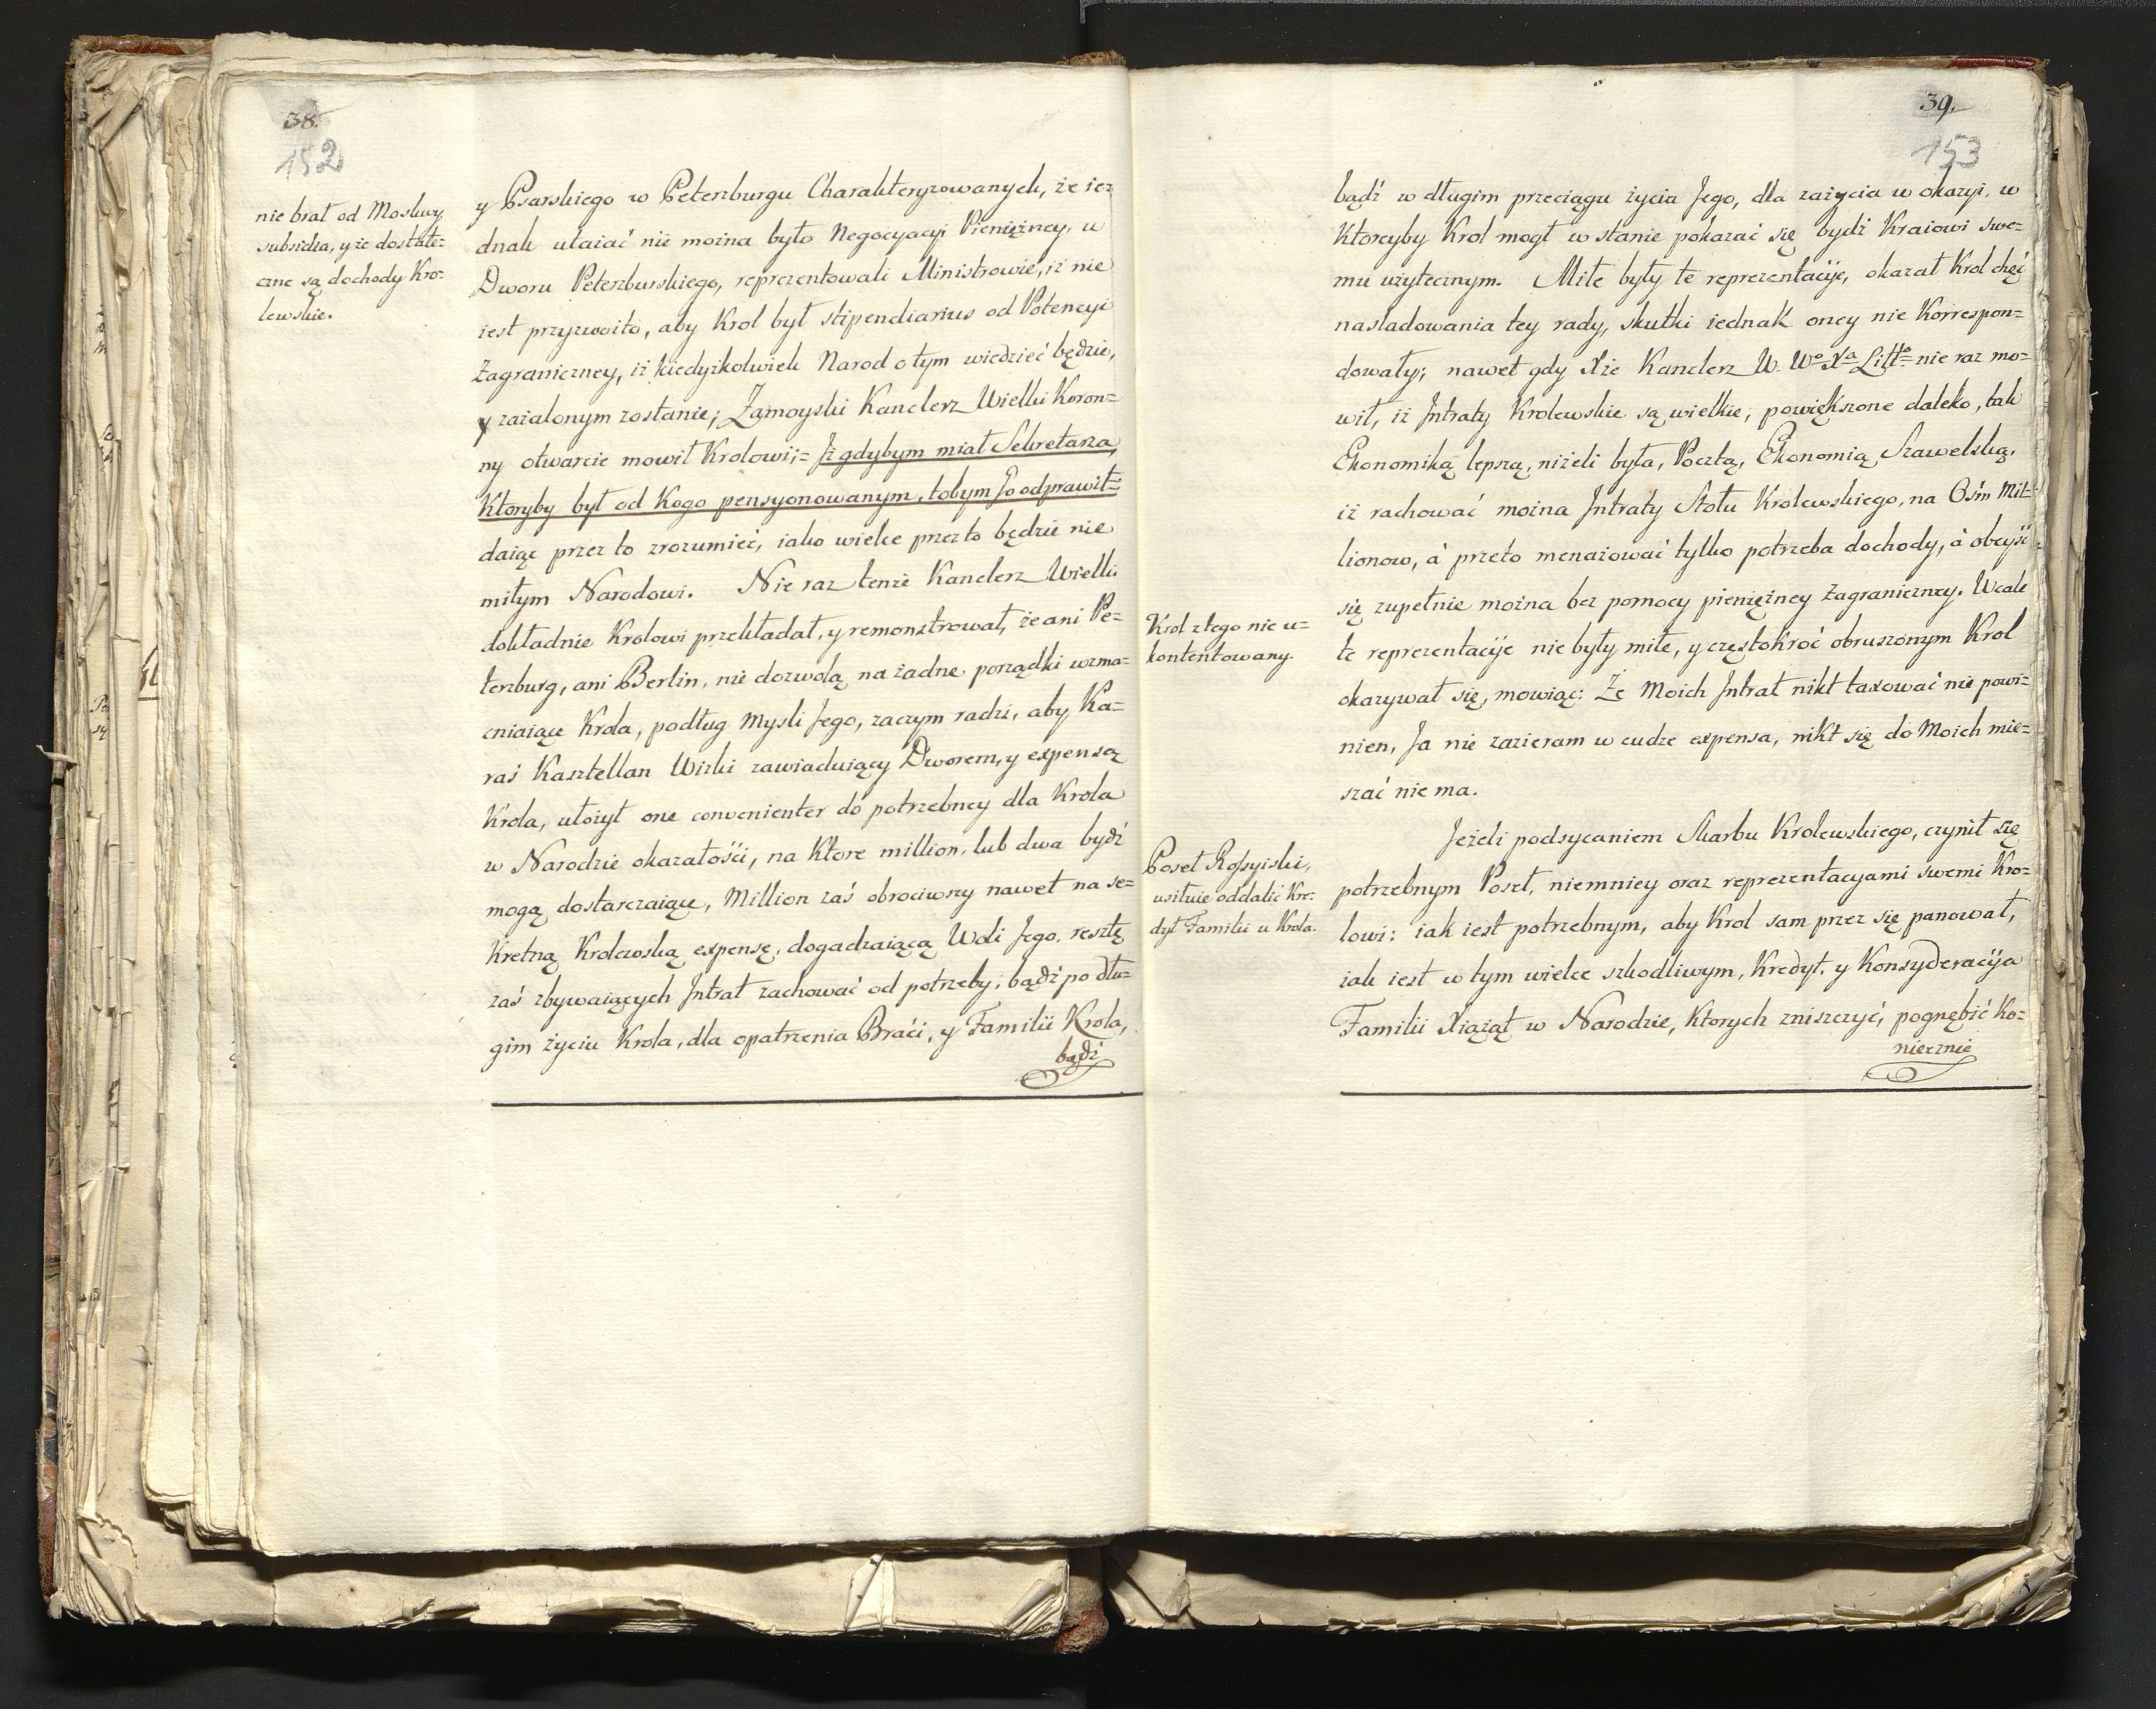 38.
152
nie brał od Moskwy
subsidia, y że dostate=
czne są dochody Kro=
lewskie.
y Psarskiego w Peterzburgu Charakteryzowanych, że ie=
dnak utaiać nie można było Negocyacyi Pieniężney, w
Dworu Peterzburskiego, reprezentowali Ministrowie, iż nie
iest przyzwoito, aby Krol był stipendiarius od Potencyi
Zagraniczney, iż kiedyżkolwiek Narod o tym wiedzieć będzie,
y zażalonym zostanie; Zamoyski Kanclerz Wielki Koron=
ny otwarcie mowił Krolowi;= Jż gdybym miał Sekretarza,
Ktoryby był od Kogo pensyonowanym, tobym Go odprawił=
daiąc przez to zrozumieć, iako wielce przez to będzie nie
miłym Narodowi. Nie raz tenże Kanclerz Wielki
dokładnie Krolowi przekładał, y remonstrował, że ani Pe=
terzburg, ani Berlin, nie dozwolą na żadne porządki wzma=
cniaiące Krola, podług Mysli Jego, zaczym radzi, aby Ka=
raś Kasztellan Wizki zawiaduiący Dworem, y expensą
Krola, ułożył one convenienter do potrzebney dla Krola
w Narodzie okazałości, na Ktore million, lub dwa bydź
mogą dostarczaiące, Million zaś obrociwszy nawet na se=
kretną Krolewską expensę, dogadzaiącą Woli Jego, resztę
zaś zbywaiących Jntrat zachować od potrzeby, bądź po dłu=
gim życiu Krola, dla opatrzenia Braci, y Familii Krola,
bądź
39.
153
bądź w długim przeciągu życia Jego, dla zażycia w okazyi, w
Ktoreyby Krol mogł w stanie pokazać się bydź Kraiowi swe=
mu użytecznym. Miłe były te reprezentacije, okazał Krol chęć
nasladowania tey rady, skutki iednak oney nie Korrespon=
dowały; nawet gdy Xże Kanclerz W. Wo Xa Litto nie raz mo=
wił, iż Jntraty Krolewskie są wielkie, powiększone daleko, tak
Ekonomiką lepszą, niżeli była, Pocztą, Ekonomią Szawelską,
iż rachować można Jntraty Stołu Krolewskiego, na Ośm Mil=
lionow, à przeto menażować tylko potrzeba dochody, à obeyść
się zupełnie można bez pomocy pieniężney Zagraniczney. Wcale
te reprezentacije nie były miłe, y częstokroć obruszonym Krol
okazywał się, mowiąc: Że Moich Jntrat nikt taxować nie powi=
nien, Ja nie zazieram w cudze expensa, nikt się do Moich mie=
szać nie ma.
Krol z tego nie u=
kontentowany.
Jeżeli podsycaniem Skarbu Krolewskiego, czynił się
potrzebnym Poseł, niemniey oraz reprezentacyami swemi Kro=
lowi: iak iest potrzebnym, aby Krol sam przez się panował,
iak iest w tym wielce szkodliwym, Kredyt, y Konsyderacija
Familii Xiążąt w Narodzie, Ktorych zniszczyć, pognębić Ko=
niecznie
Poseł Rossyiski,
usiłuie oddalić Kre=
dyt Familii u Krola.